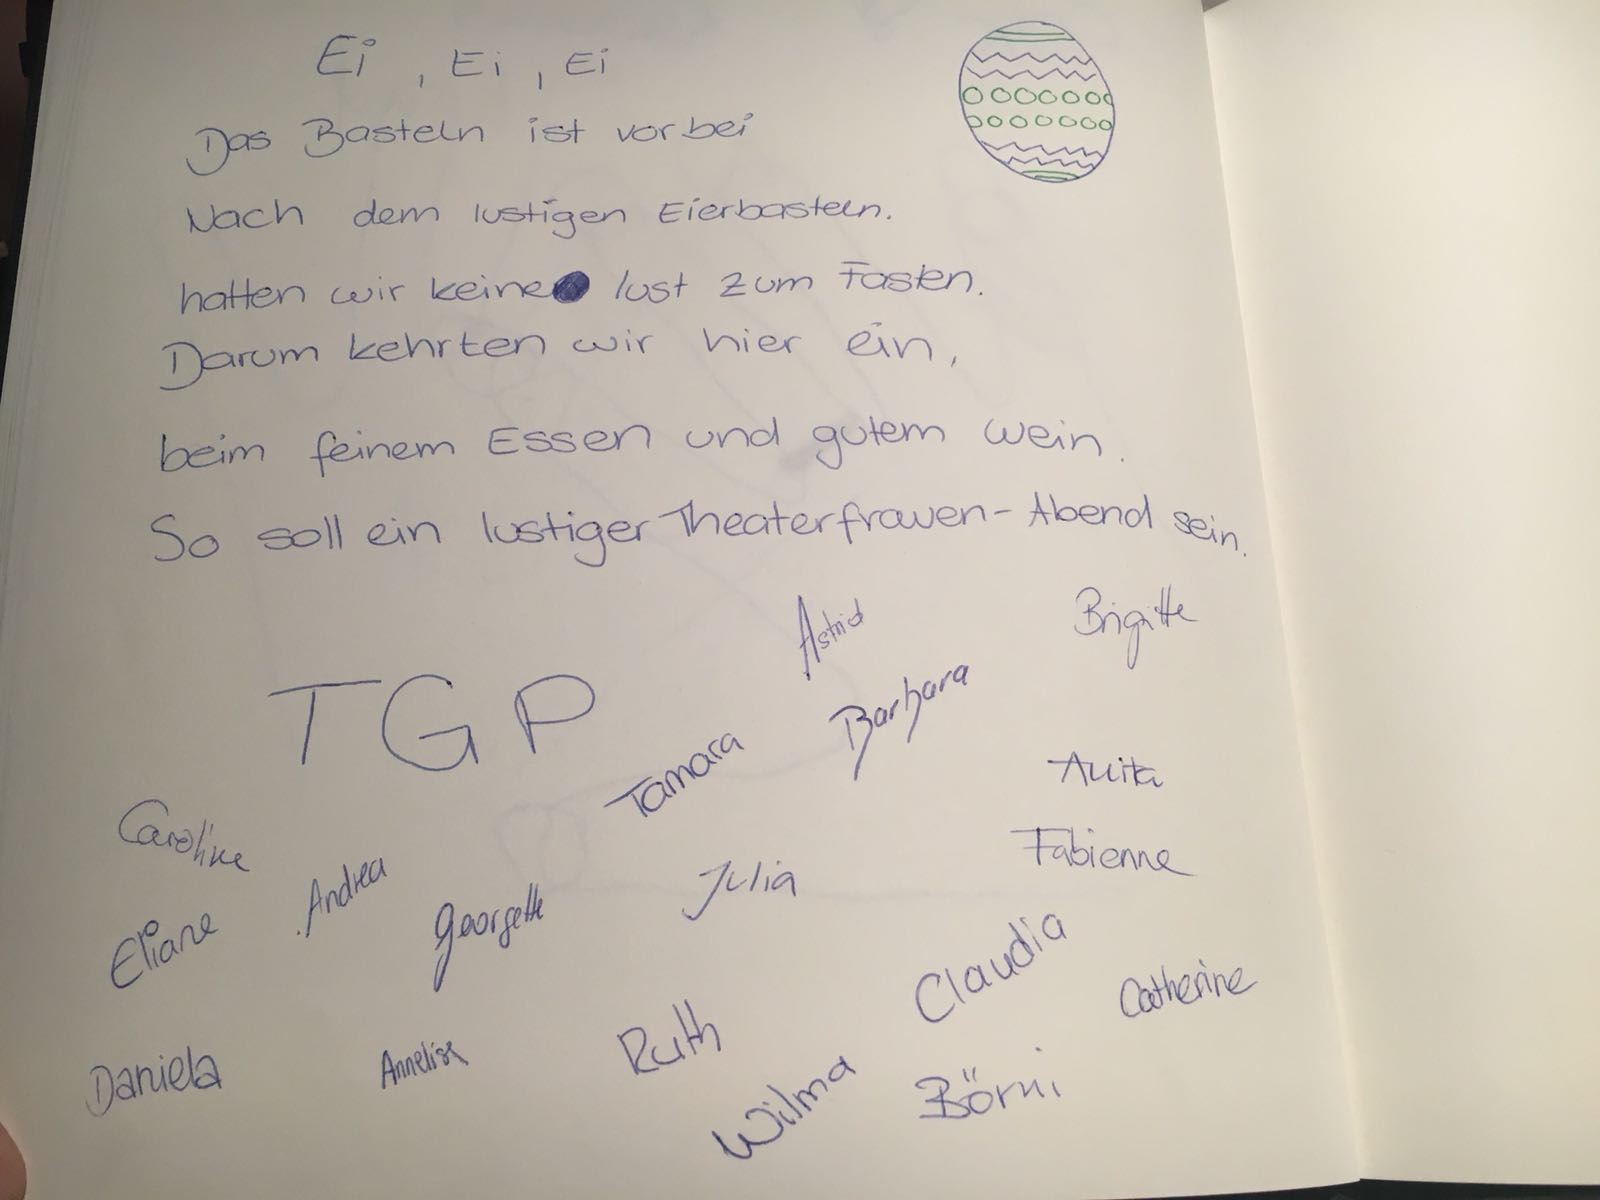 Ei , Ei , Ei
Das Basteln ist vorbei
Nach dem lustigen Eierbasteln.
hatten wir keine lust zum Fasten.
Darum kehrten wir hier ein,
beim feinem Essen und gutem wein.
So soll ein lustiger Theaterfrauen-Abend sein.
Astrid
Brigitte
TGP
Barbara
Tamara
Anita
Caroline
Fabienne
Andrea
Julia
Georgette
Eliane
Claudia
Catherine
Ruth
Annelise
Daniela
Börni
Wilma